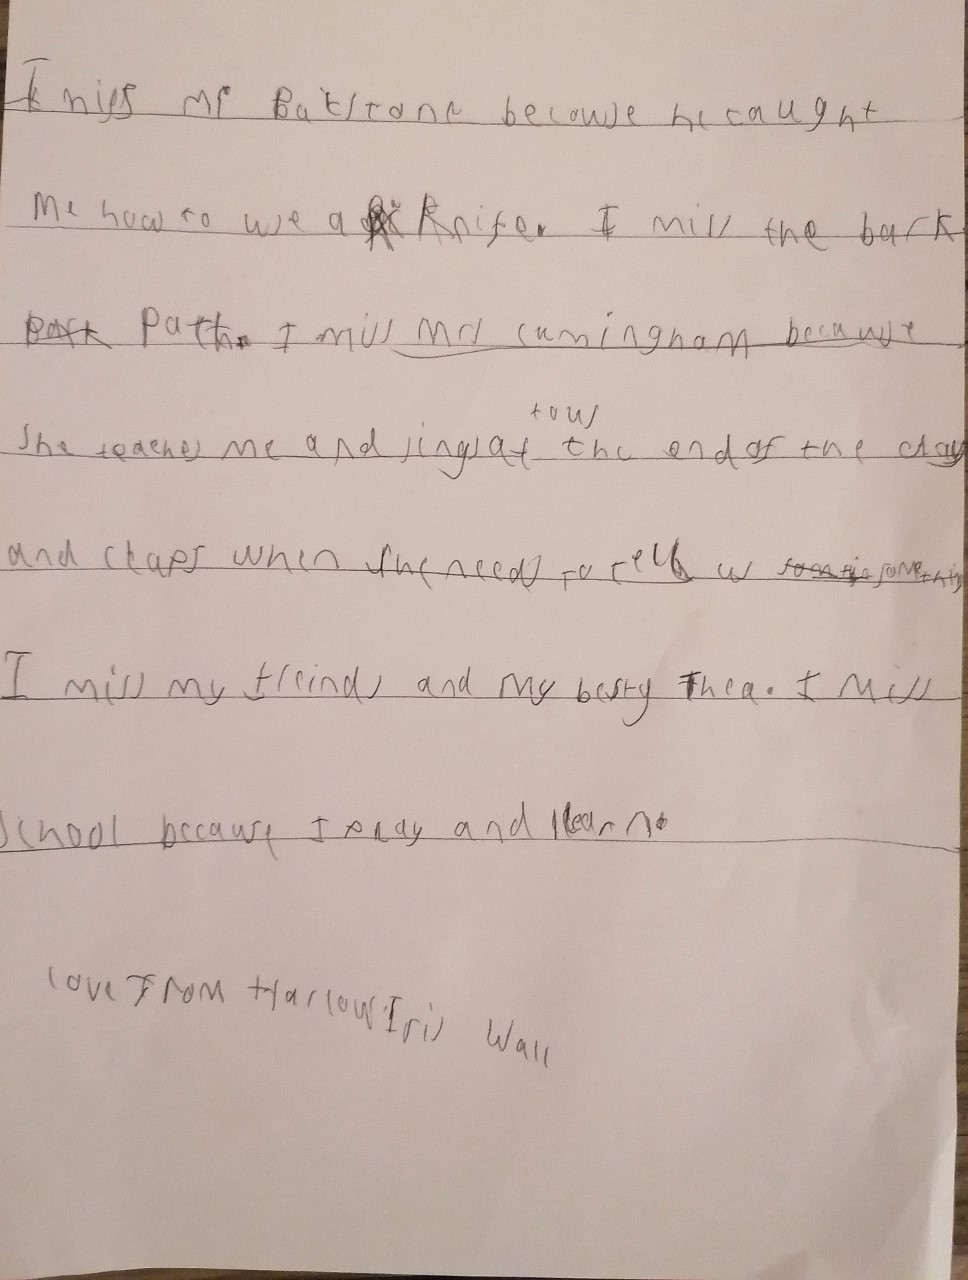 I miss Mr Bakstone because he taught
Me how to use a Knife. I miss the bark
Path. I miss Mrs cumingham because
She teaches me and sings at to us the end of the day
and claps when she needs to tell us something
I miss my freinds and my besty Thea. I Miss
School because I play and learn.
love From Harlow Iris Wall